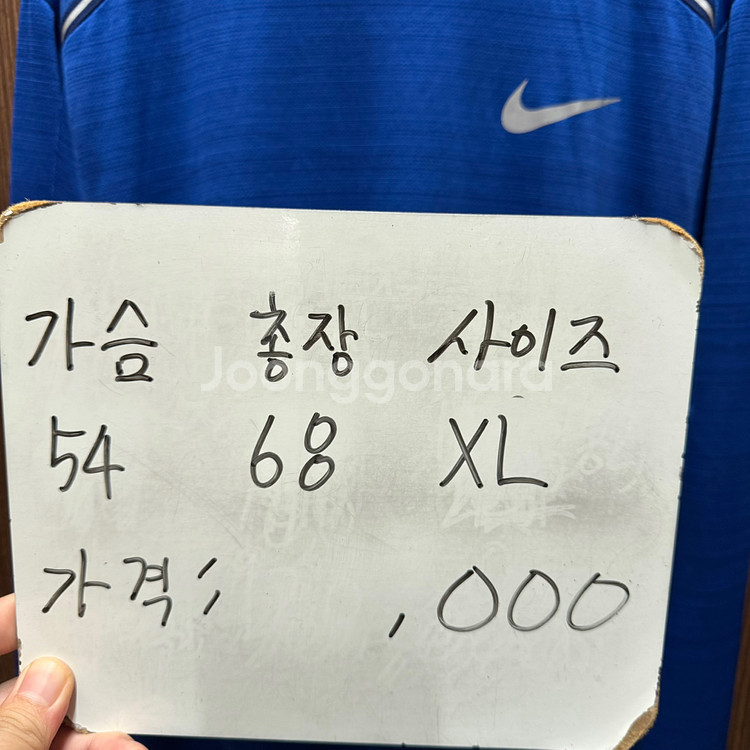 가슴 총장 사이즈
Joonggonara
54 68 XL
가격: ,000